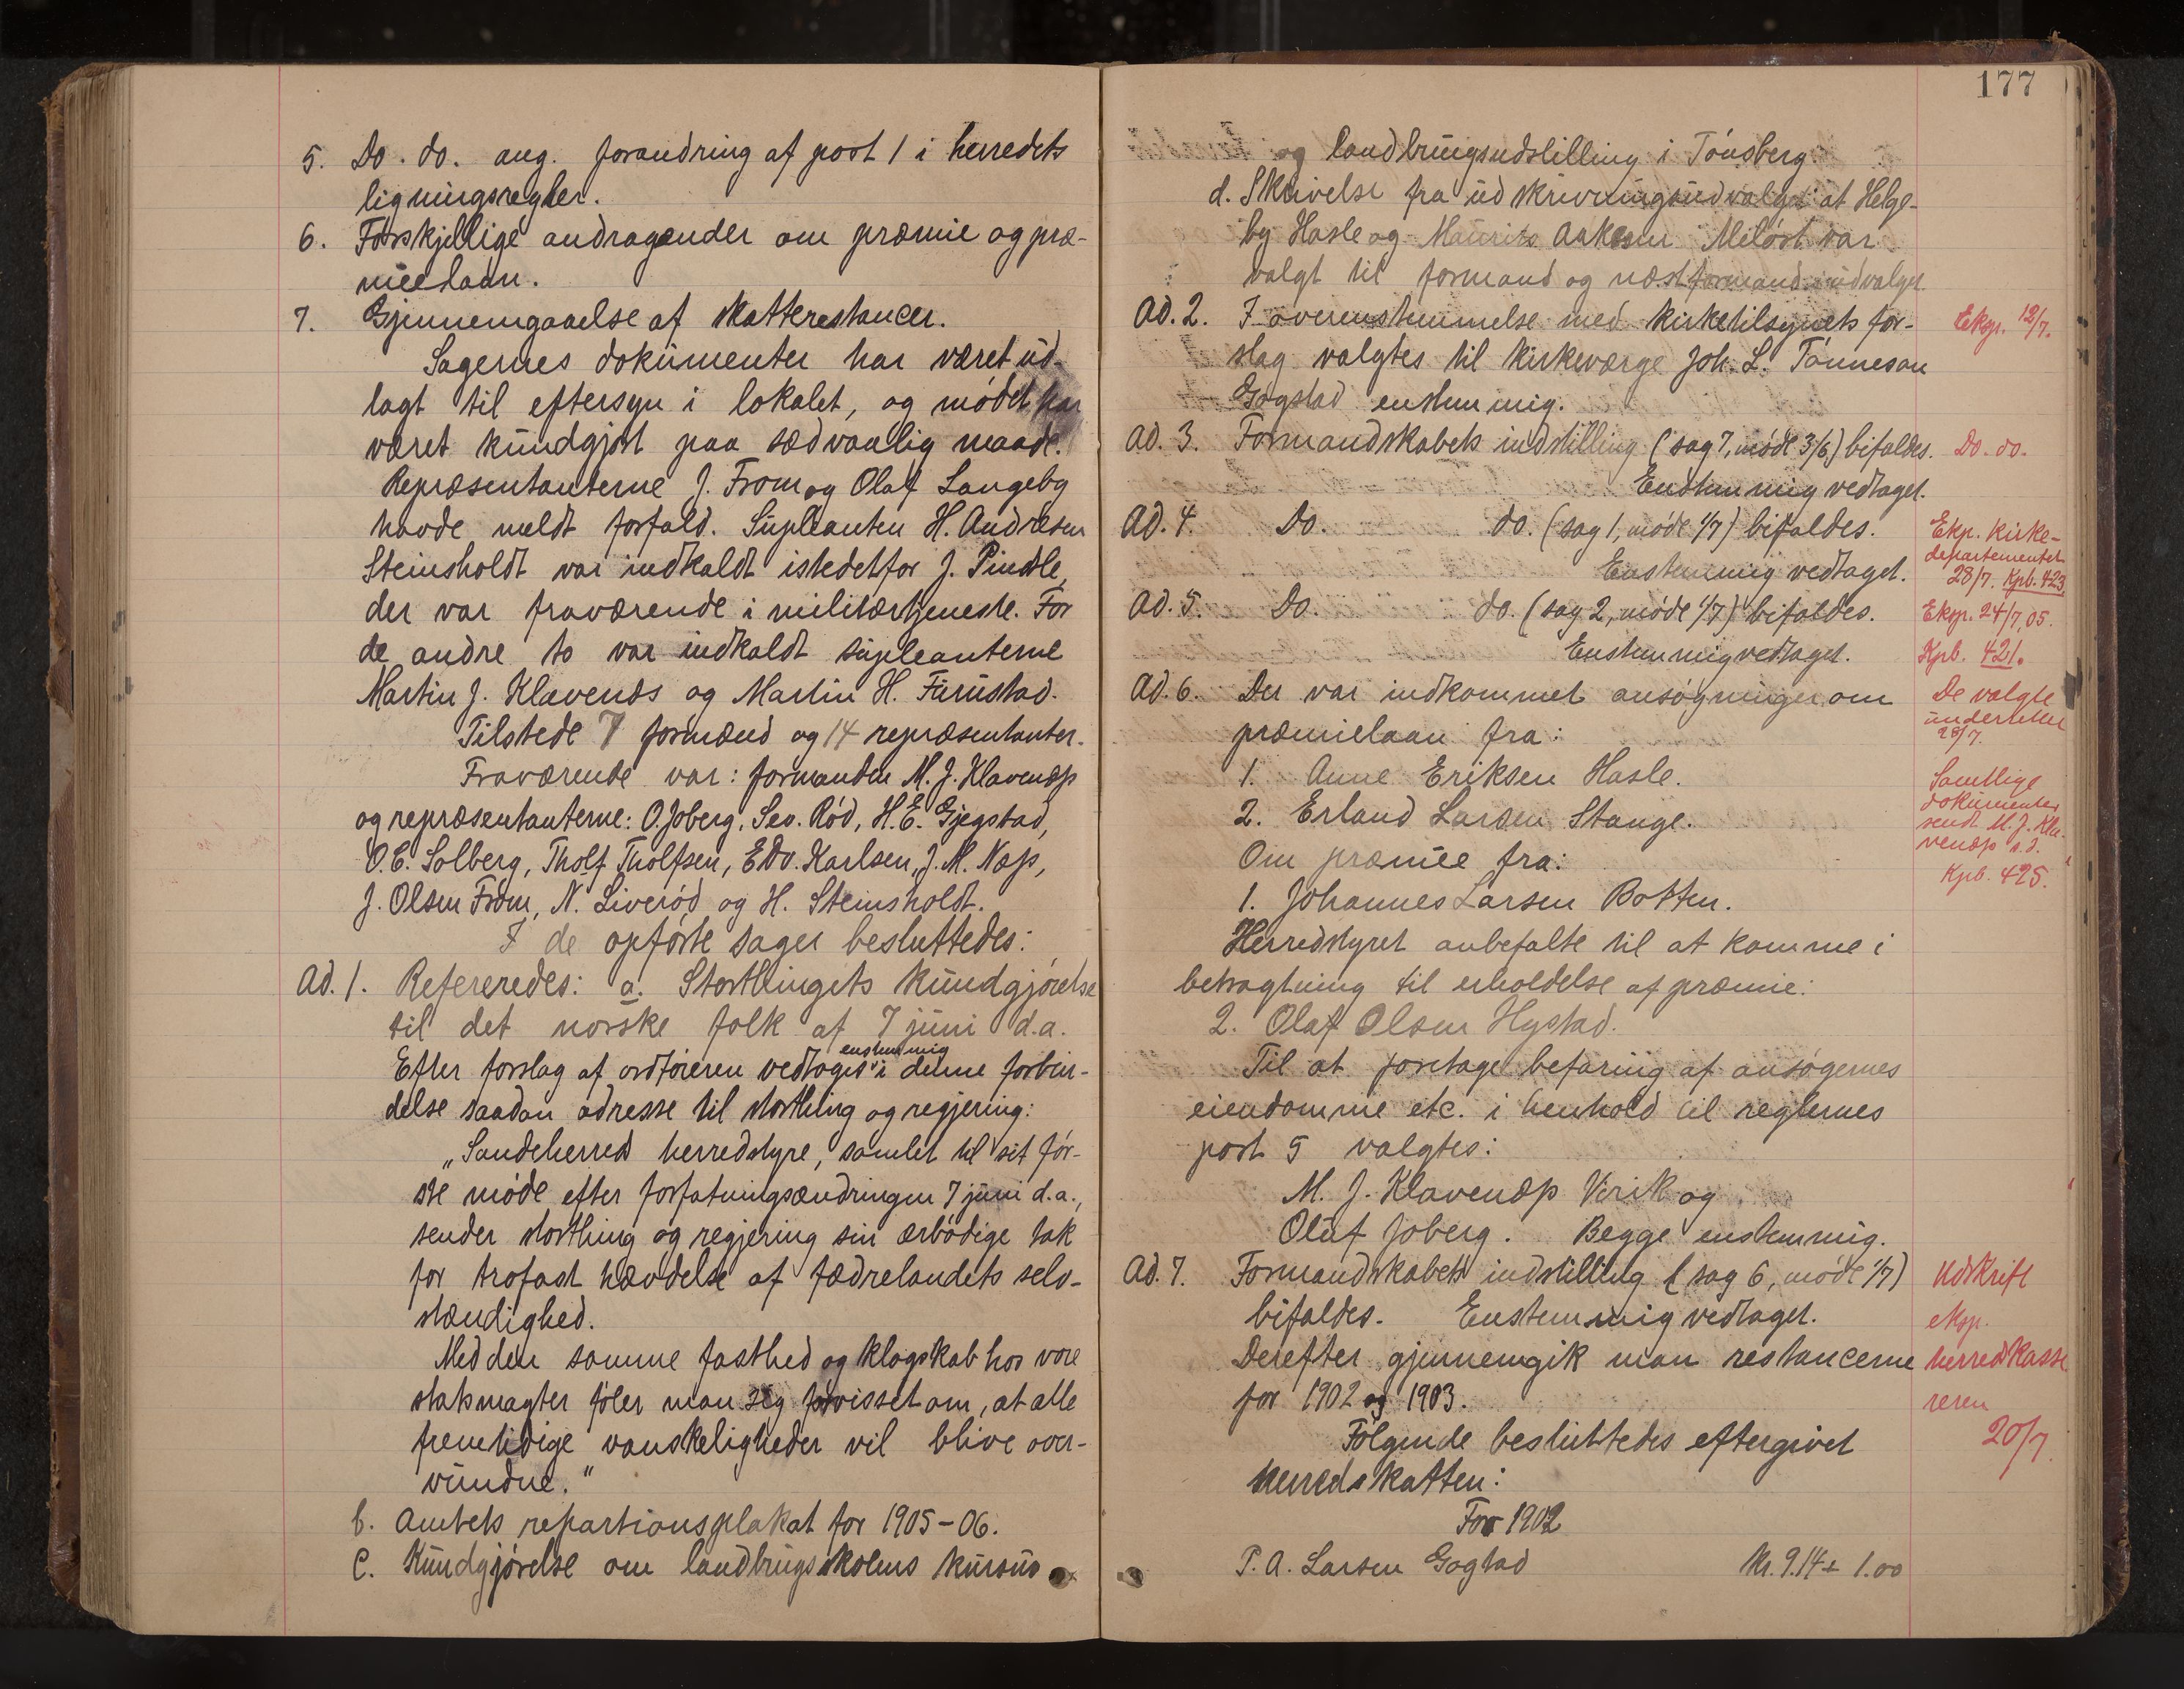 5. Do. do. ang. forandring af post 1 i herredets
ligningsregler.
6. Forskjellige andragender om præmie og præ-
mielaan.
7. Gjennemgaaelse af skatterestancer.
Sagernes dokumenter har været ud-
lagt til eftersyn i lokalet, og mødet har
været kundgjort paa sædvanlig maade.
Repræsentanterne J. From og Olaf Langeby
havde meldt forfald. Supleanten H. Andresen
Steinsholdt var indkaldt istedetfor J. Pindsle,
der var fraværende i militærtjeneste. For
de andre to var indkaldt supleanterne
Martin J. Klavenæs og Martin H. Furustad.
Tilstede 7 formænd og 14 repræsentanter.
Fraværende var: formanden M. J. Klavenæs
og repræsentanterne: O. Joberg, Sev. Rød, H. E. Gjegstad,
O. E. Solberg, Tholf Tholfsen, Edv. Karlsen, J. M. Næs,
J. Olsen From, N. Liverød og H. Steinsholdt.
I de opførte sager besluttedes:
Ad. 1. Refereredes: a. Storthingets kundgjørelse
til det norske folk af 7 juni d.a.
enstemmig
Efter forslag af ordføreren vedtoges i denne forbin-
delse saadan adresse til storthing og regjering:
„Sandeherred herredstyre, samlet til sit før-
ste møde efter forfatningsændringen 7 juni d.a.,
sender storthing og regjering sin ærbødige tak
for trofast hævdelse af fædrelandets selv-
stændighed.
Med den samme fasthed og klogskab hos vore
statsmagter føler man sig forvisset om, at alle
fremtidige vanskeligheder vil blive over-
vundne."
b. Amtets repartionsplakat for 1905-06.
c. Kundgjørelse om landbrugsskolens kursus
177
og landbrugsudstilling i Tønsberg
d. Skrivelse fra udskrivningsudvalget at Helge-
by Hasle og Maurits Aakesen Meløst var
valgt til formand og næstformand i udvalget
Ad. 2. I overenstemmelse med kirketilsynets for-
slag valgtes til kirkeværge Joh. L. Tønneson
Gogstad enstemmig.
Eksp. 12/7.
Ad. 3. Formandskabets indstilling (sag 7, møde 3/6) bifaldes.
Do. do.
Enstemmig vedtaget.
Ad. 4. Do. do. (sag 1, møde 1/7) bifaldes.
Enstemmig vedtaget.
Ekp. kirke-
departementet
28/7. Kpb. 423
Ad. 5. Do. do. (sag 2, møde 1/7) bifaldes.
Enstemmig vedtaget.
Eksp. 24/7, 05.
Kpb. 421.
Ad. 6. Der var indkommet ansøgninger om
præmielaan fra:
1. Anne Eriksen Hasle.
2. Erland Larsen Stange.
Om præmie fra:
1. Johannes Larsen Botten.
De valgte
underrettet
28/7.
Samtlige
dokumenter
sendt M. J. Kla-
venæs s. d.
Kpb. 425.
Herredstyret anbefalte til at komme i
betragtning til erholdelse af præmie:
2. Olaf Olsen Hystad.
Til at foretage befaring af ansøgernes
eiendomme etc. i henhold til reglernes
post 5 valgtes:
M. J. Klavenæs Virik og
Oluf Joberg. Begge enstemmig.
Ad. 7. Formandskabets indstilling (sag 6, møde 1/7)
bifaldes. Enstemmig vedtaget.
Derefter gjennemgik man restancerne
for 1902 og 1903.
Udskrift
eksp.
herredskasse
reren
20/7
Følgende besluttedes eftergivet
herredskatten:
For 1902
P. A. Larsen Gogstad kr. 9.14 + 1.00